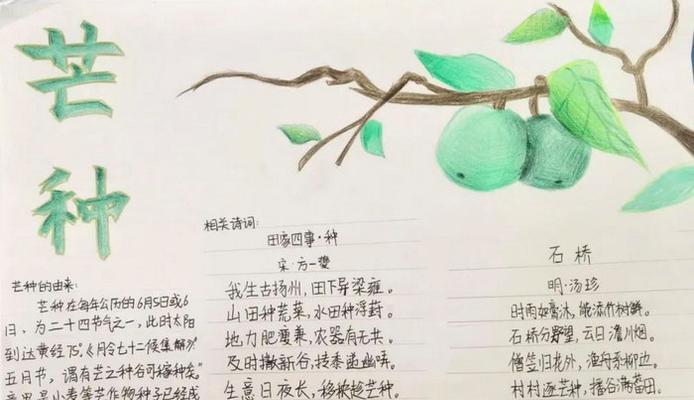 芒种
芒种的由来:
芒种在每年公历的6月5日或6
日,为二十四节气之一,此时太阳
到达黄经75°。《月令七十二候集解》:
五月节,谓有芒之种谷可稼种矣"
相关诗词:
田家四事·种
宋·方一夔
我生古扬州,田下异梁雍。
山田种荒菜,水田种浮葑。
地力肥瘦兼,农器有无共。
及时撒新谷,
生意日夜长,移秧趁芒种。
石桥
明·汤珍
时雨如膏沐,能添竹树鲜。
石桥分野望,云日澹川烟。
僧笠归花外,渔舟系柳边。
村村逐芒种,播谷满畬田。